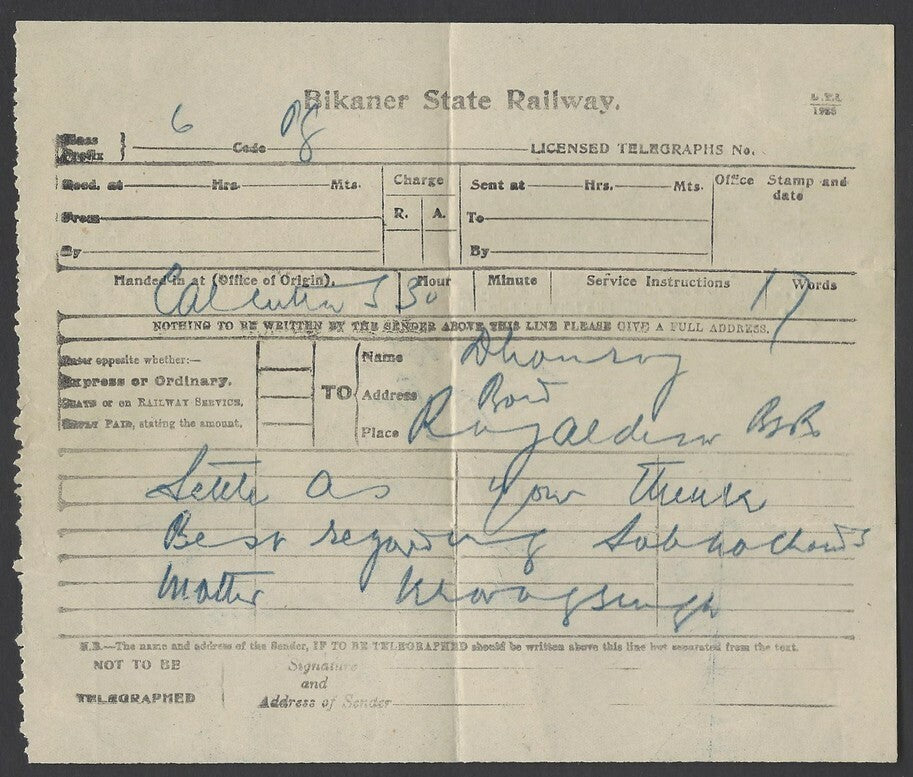 Bikaner State Railway.
1938
Class Prefix } 6 Code LICENSED TELEGRAPHS No.
Recd. at Hrs. Mts. Charge Sent at Hrs. Mts. Office Stamp and date
From R. A. To
By By
Handed in at (Office of Origin). Hour Minute Service Instructions Words
Calcutta 5 30 17
NOTHING TO BE WRITTEN BY THE SENDER ABOVE THIS LINE PLEASE GIVE A FULL ADDRESS.
Enter opposite whether:—
Express or Ordinary.
STATE or on RAILWAY SERVICE,
REPLY PAID, stating the amount.
TO
Name
Address
Place
Settle As You Think
Best regarding
Matter
N.B.—The name and address of the Sender, IF TO BE TELEGRAPHED should be written above this line but separated from the text.
NOT TO BE
TELEGRAPHED
Signature
and
Address of Sender